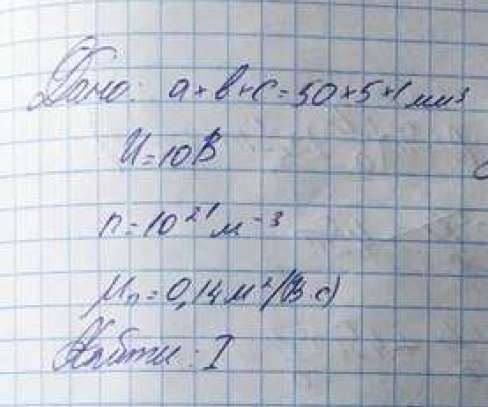 Дано: a×b×c=50×5×1 мм³
U=10В
n=10²¹ м⁻³
μₙ=0,14 м²/(В·с)
Найти: I